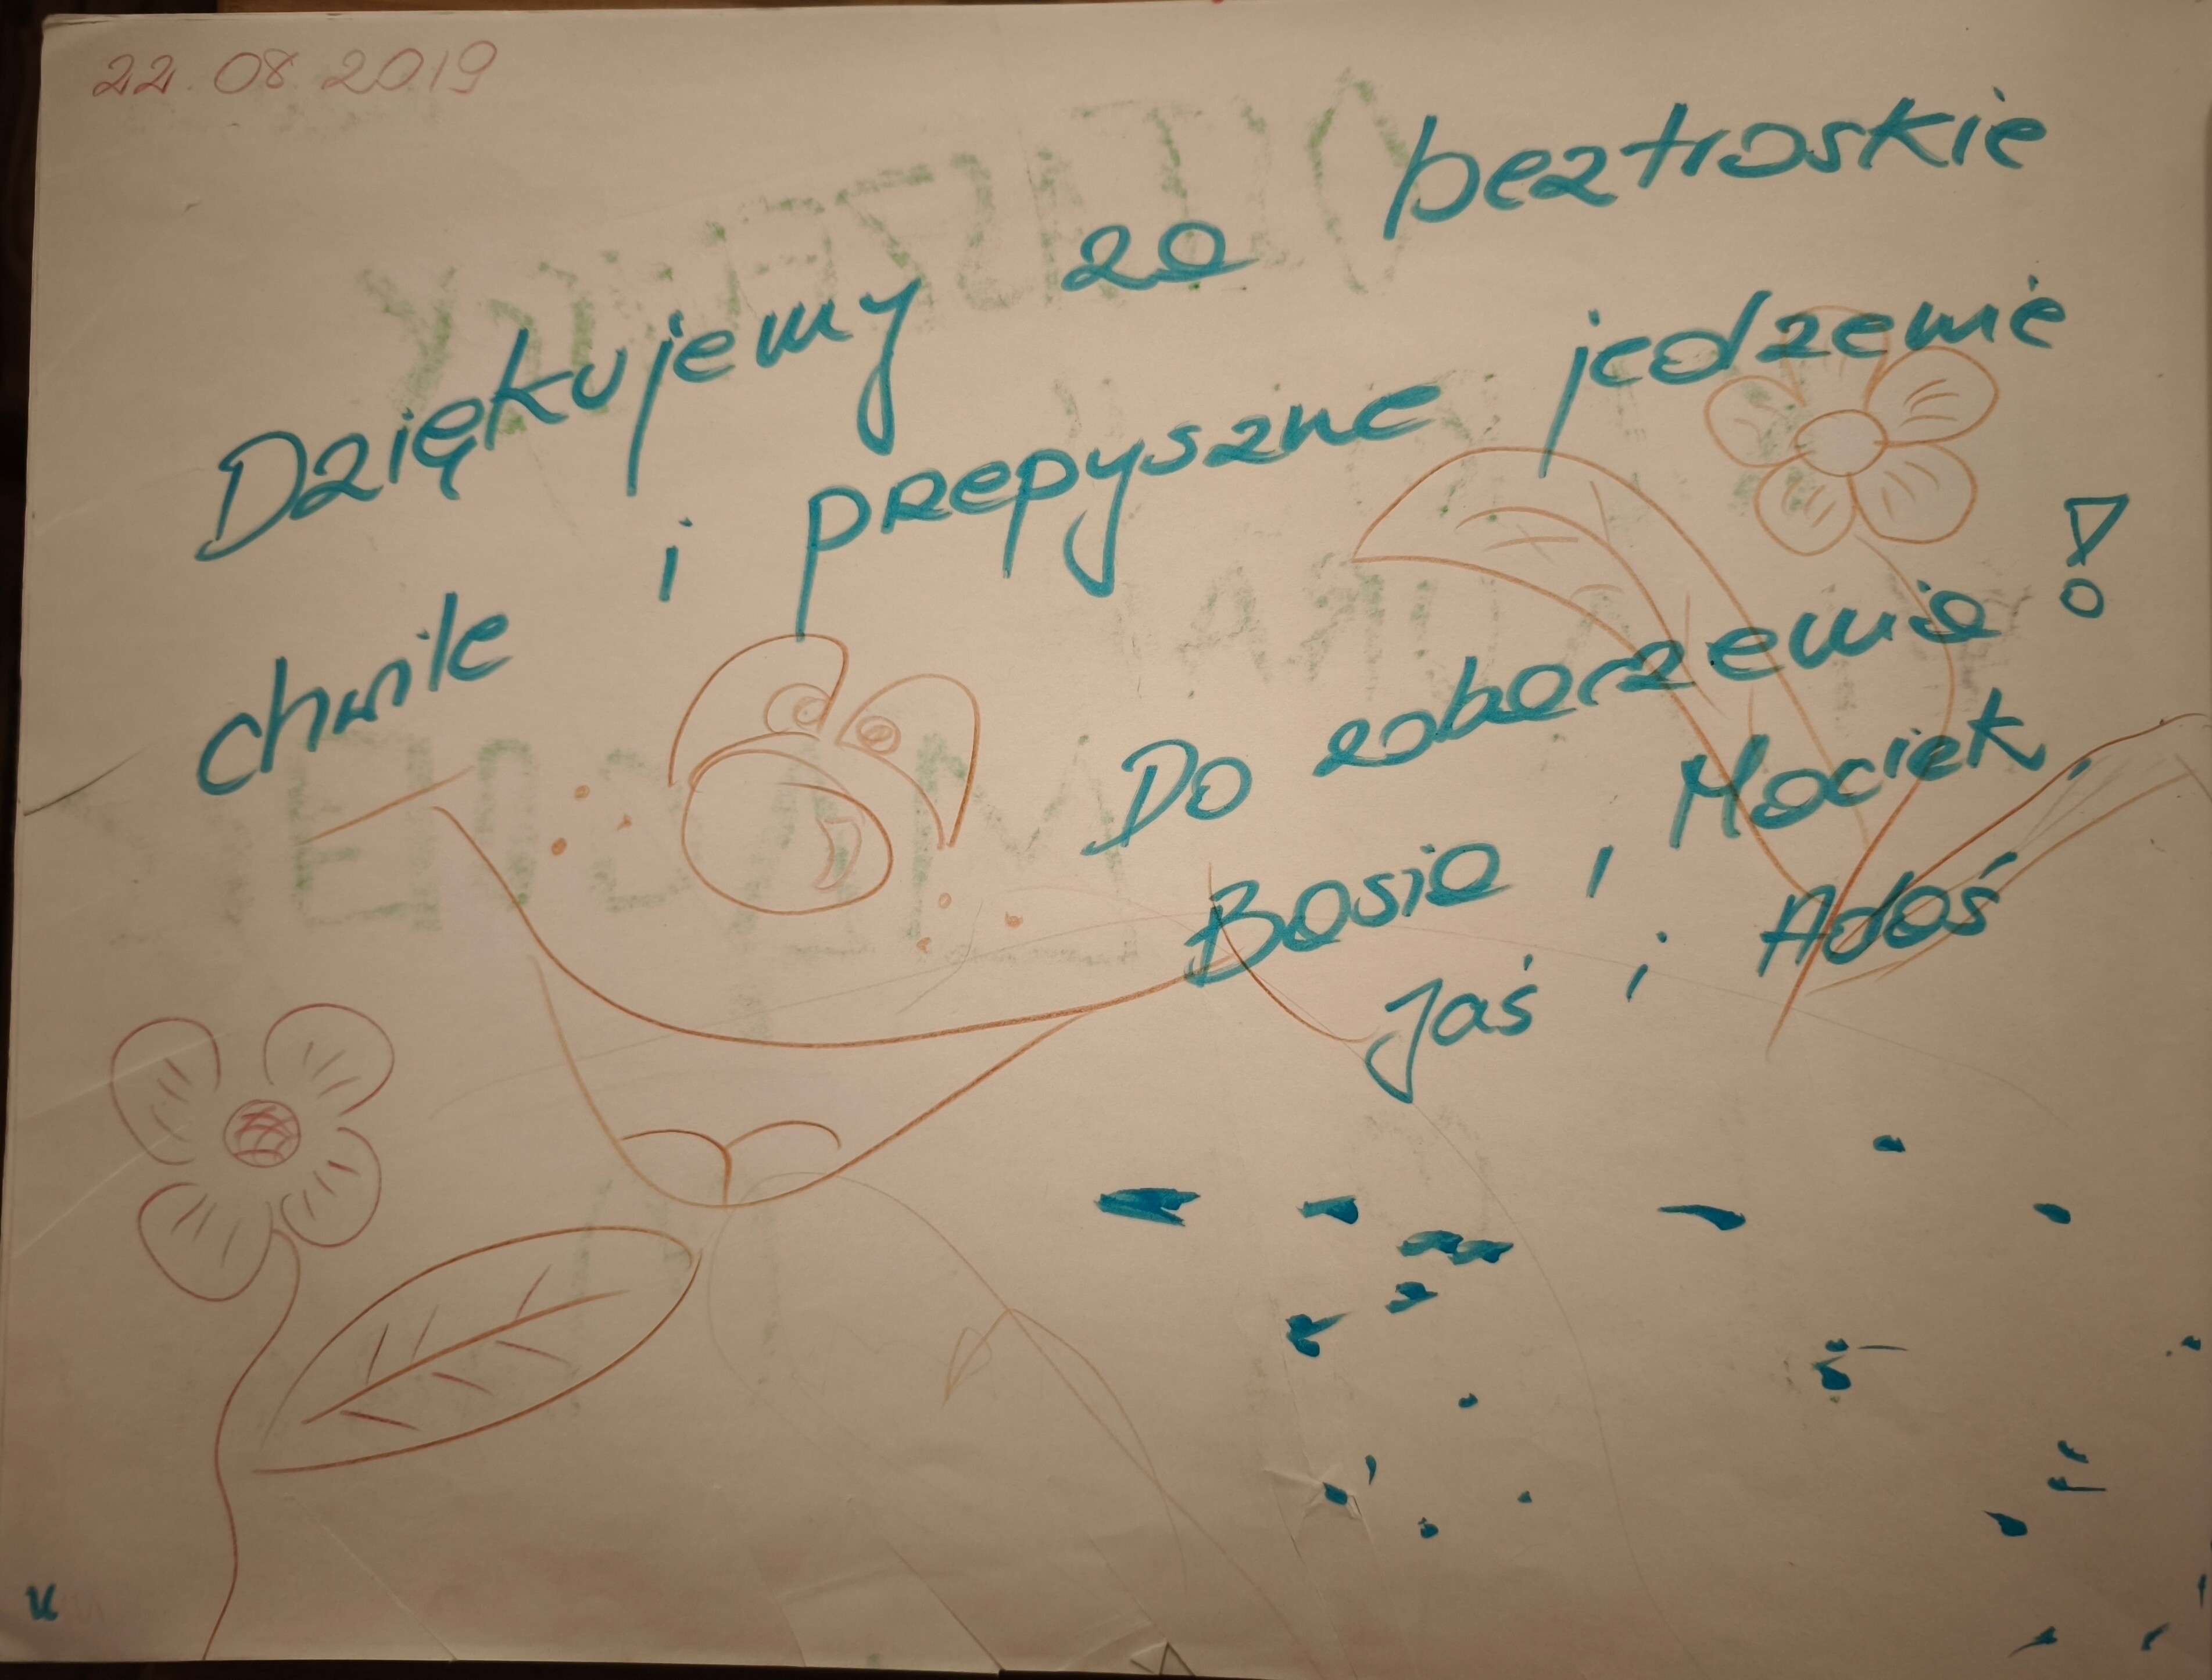 22.08.2019
Dziękujemy za beztroskie
chwile i przepyszne jedzenie
Do zobaczenia!
Basia, Maciek,
Jaś i Adaś